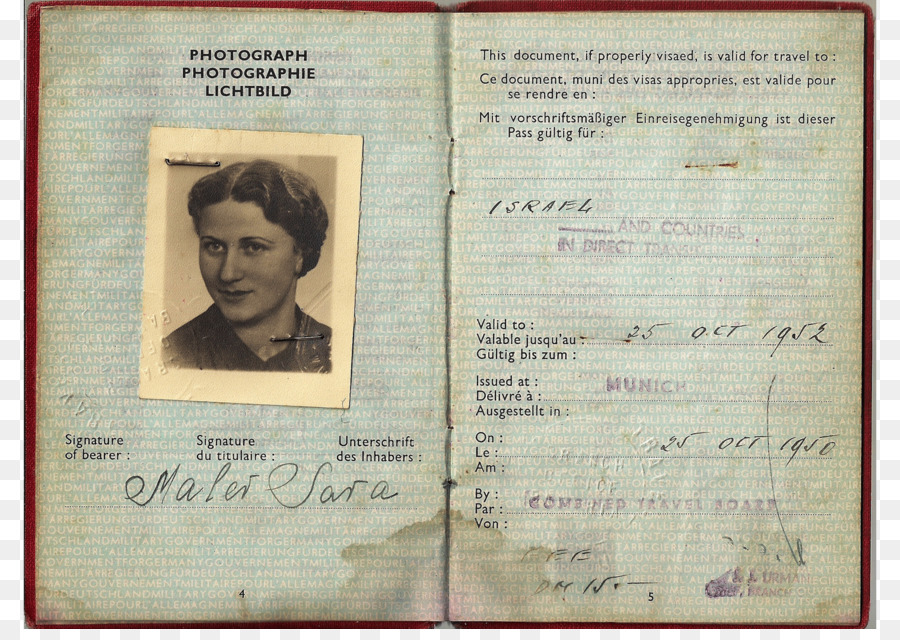 PHOTOGRAPH
PHOTOGRAPHIE
LICHTBILD
Signature
of bearer :
Signature
du titulaire :
Unterschrift
des Inhabers :
Maler Sara
4
This document, if properly visaed, is valid for travel to :
Ce document, muni des visas appropries, est valide pour
se rendre en :
Mit vorschriftsmäßiger Einreisegenehmigung ist dieser
Pass gültig für :
ISRAEL
AND COUNTRIES
IN DIRECT TRANSIT
Valid to :
Valable jusqu'au :
Gültig bis zum :
25 OCT 1952
Issued at :
Délivré à :
Ausgestellt in :
MUNICH
On :
Le :
Am :
25 OCT 1950
By :
Par :
Von :
COMBINED TRAVEL BOARD
FEE
DM 15.-
BRANCH
5